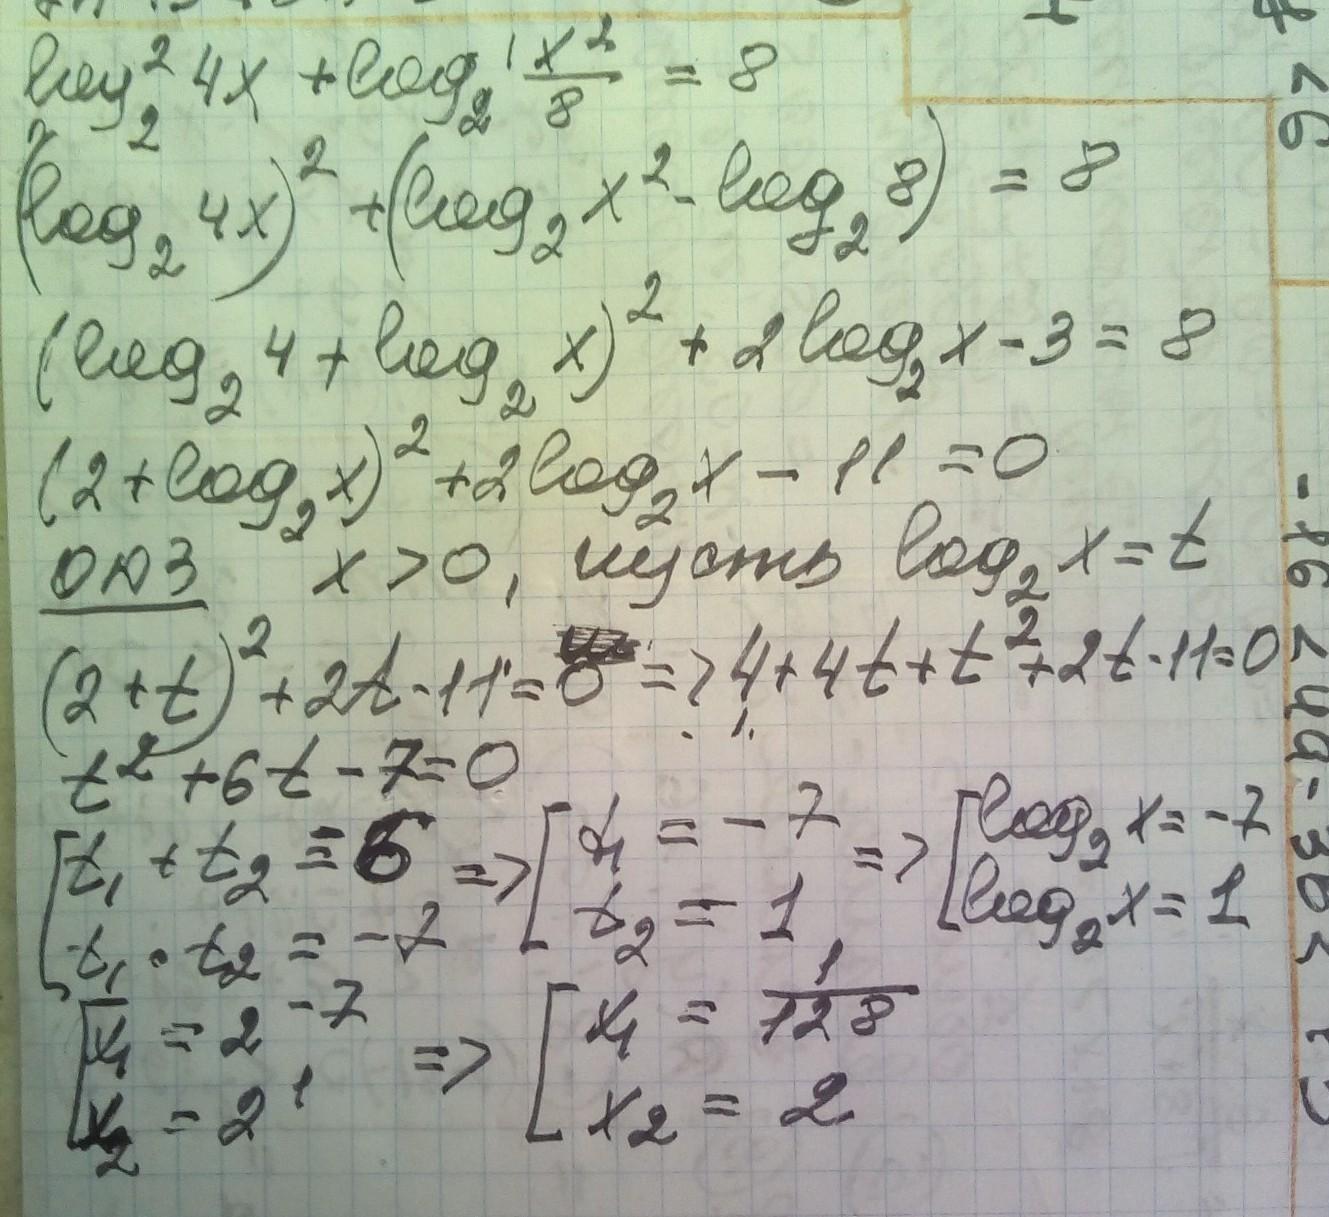 log₂² 4x + log₂ x²/8 = 8
(log₂ 4x)² + (log₂ x² - log₂ 8) = 8
(log₂ 4 + log₂ x)² + 2 log₂ x - 3 = 8
(2 + log₂ x)² + 2 log₂ x - 11 = 0
ОДЗ x > 0, пусть log₂ x = t
(2 + t)² + 2t - 11 = 0 => 4 + 4t + t² + 2t - 11 = 0
t² + 6t - 7 = 0
[ t₁ + t₂ = 6 => [ t₁ = -7 => [ log₂ x = -7
t₁ · t₂ = -7 t₂ = 1 log₂ x = 1
[ x₁ = 2⁻⁷ => [ x₁ = 1/128
x₂ = 2¹ x₂ = 2